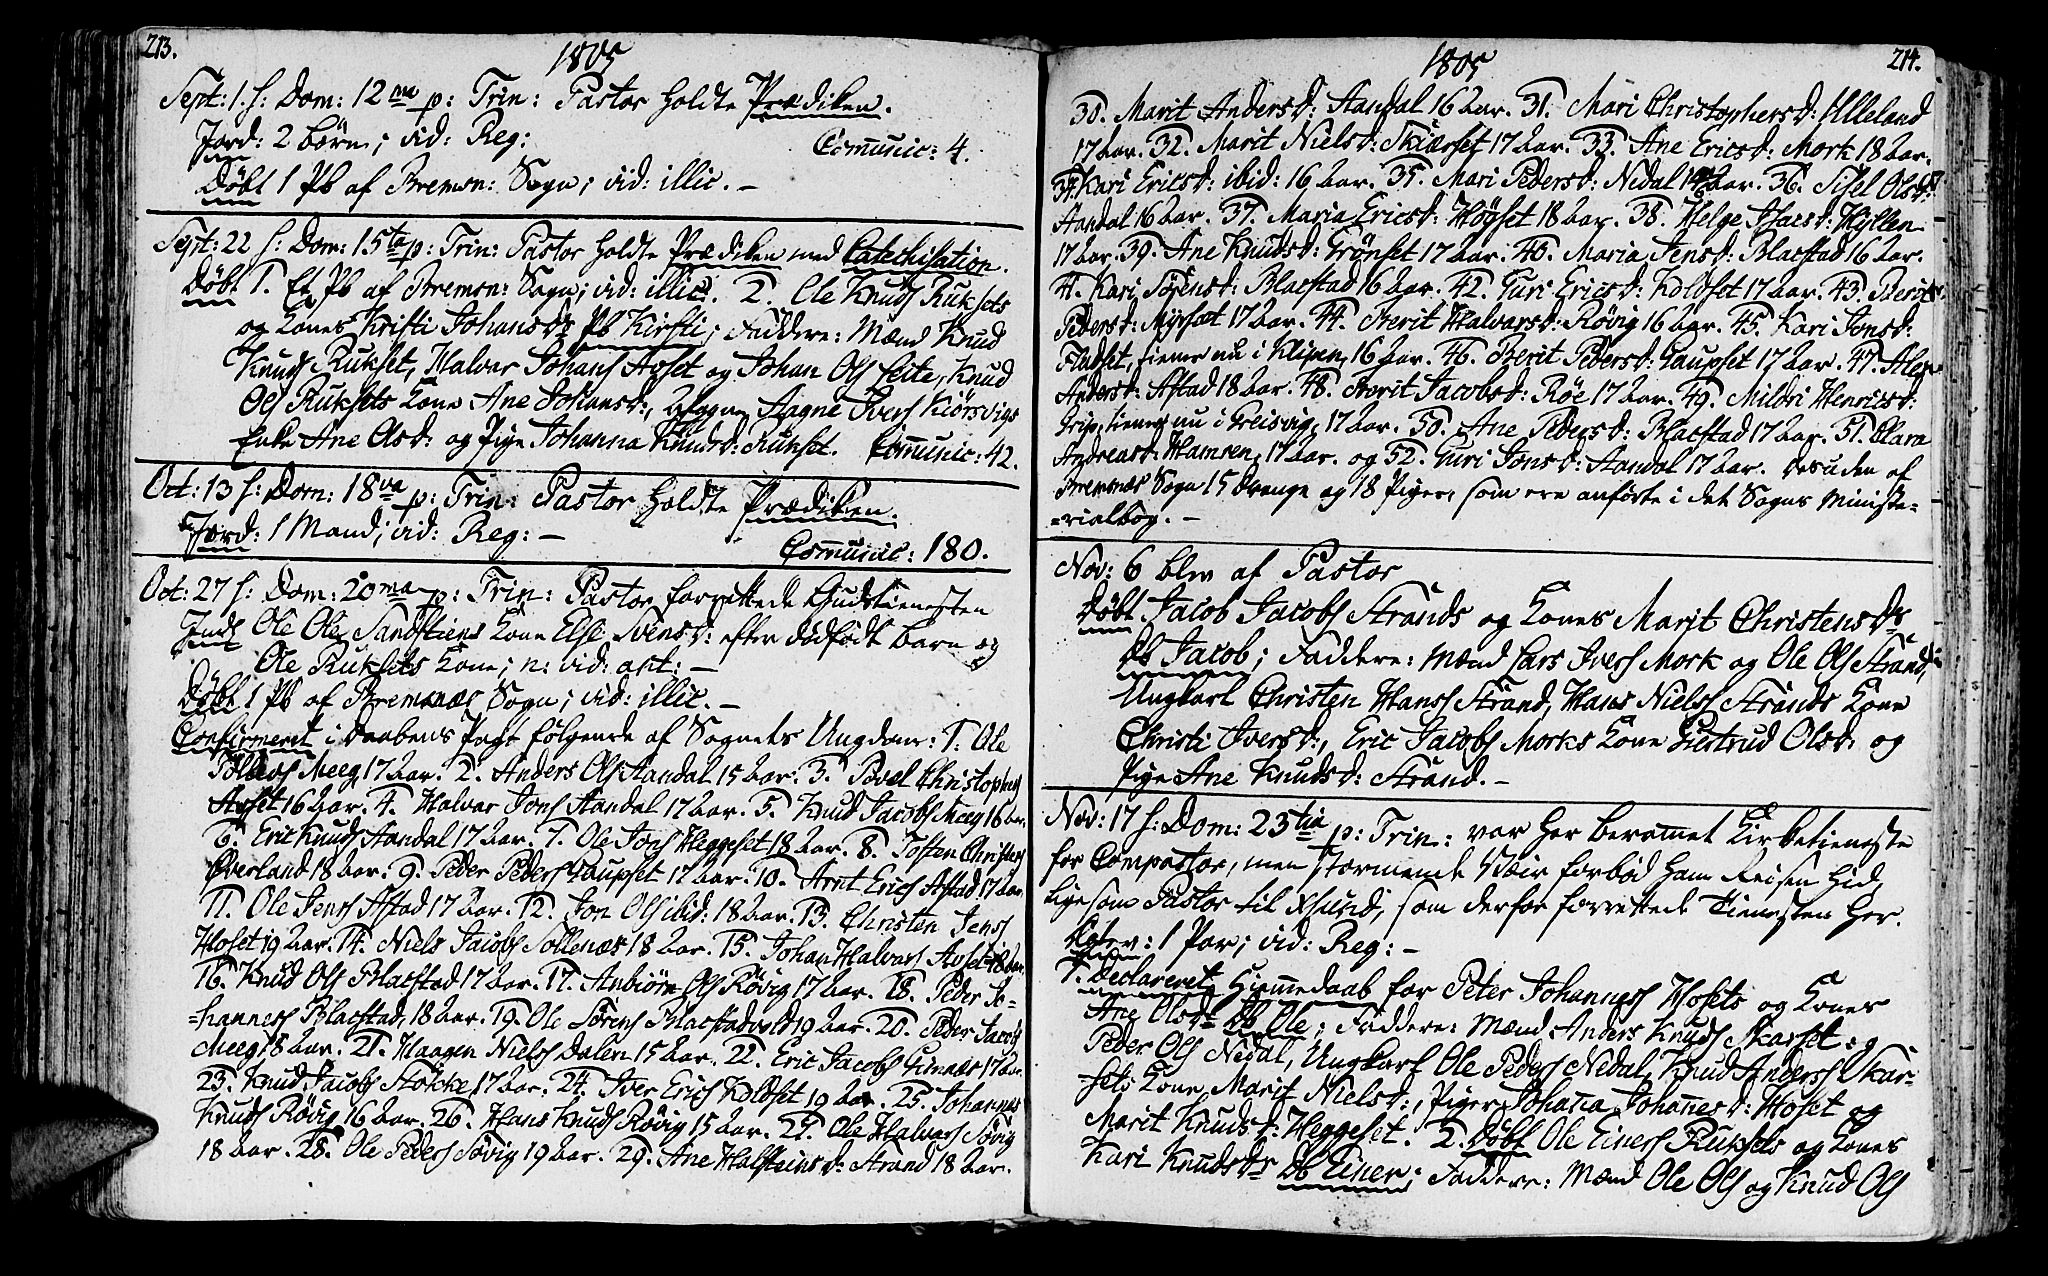 213.
1805
Sept: 1. S: Dom: 12ma p: Trin: Pastor holdte Prædiken.
Jord: 2 børn; vid: Reg: Communic: 4.
Døbt 1 Pb af Bremsn: Sogn; vid: illic. —
Sept: 22 S: Dom: 15ta p: Trin: Pastor holdte Prædiken med Catechisation.
Døbt 1. Et Pb af Bremsn: Sogn; vid: illic. 2. Ole Knuds Ruksets
og Kones Kristi Johansd: Pb Kirsti; Faddere: Mænd Knud
Knuds Rukset, Halvar Johans Aoset og Johan Ols Leite, Knud
Ols Ruksets Kone Ane Johansd:, Aagne Ivers Kiørsvigs
Enke Ane Olsd: og Pige Johanna Knudsd: Rukset. Communic: 42.
Oct: 13 S: Dom: 18va p: Trin: Pastor holdte Prædiken.
Jord: 1 Mand; vid: Reg: —
Communic: 180.
Oct: 27 S: Dom: 20ma p: Trin: Pastor forrettede Gudstienesten
Inds Ole Ols Sandstiens Kone Else Svensd: efter dødfødt barn og
Ole Ruksets Kone; n: vid: ant: —
Døbt 1 Pb af Bremsnæs Sogn; vid: illic. —
Confirmeret i Daabens Pagt følgende af Sognets Ungdom: 1. Ole
Meeg 17 aar. 2. Anders Ols Aandal 15 aar. 3. Povel Christophers
Aoset 16 aar. 4. Halvar Jons Aandal 17 aar. 5. Knud Jacobs Meeg 16 aar.
6. Eric Knuds Aandal 17 aar. 7. Ole Jons Heggeset 18 aar. 8. Tosten Christens
Øverland 18 aar. 9. Peder Peders Gaupset 17 aar. 10. Arnt Erics Astad 17 aar.
11. Ole Jens Astad 17 aar. 12. Jon Ols ibid: 18 aar. 13. Christen Jens
Hoset 19 aar. 14. Niels Jacobs Sollenæs 18 aar. 15. Johan Halvars Aoset 18 aar.
16. Knud Ols Blacstad 17 aar. 17. Anbiørn Ols Røvig 17 aar. 18. Peder Jo-
=hannes Blacstad, 18 aar. 19. Ole Sørens Blacstadvold 19 aar. 20. Peder Jacobs
Meeg 18 aar. 21. Haagen Niels Dalen 15 aar. 22. Eric Jacobs Gimnæs 17 aar.
23. Knud Jacobs Stokke 17 aar. 24. Iver Erics Koldset 19 aar. 25. Johannes
Knuds Røvig 16 aar. 26. Hans Knuds Røvig 15 aar. 27. Ole Halvars Søvig
18 aar. 28. Ole Peders Søvig 19 aar. 29. Ane Halsteinsd: Strand 18 aar.
214.
1805
30. Marit Andersd: Aandal 16 aar. 31. Mari Christophersd: Ulleland
17 aar. 32. Marit Nielsd: Skiæset 17 aar. 33. Ane Ericsd: Mork 18 aar.
34. Kari Ericsd: ibid: 16 aar. 35. Mari Pedersd: Nedal aar. 36. Sisel Olsd:
Aandal 16 aar. 37. Maria Ericsd: Høgset 18 aar. 38. Helge Isacsd: Hyllen
17 aar. 39. Ane Knudsd: Grønset 17 aar. 40. Maria Jensd: Blacstad 16 aar.
41. Kari Sørensd: Blacstad 16 aar. 42. Guri Ericsd: Koldset 17 aar. 43. Berit
Pedersd: Myrset 17 aar. 44. Berit Halvarsd: Røvig 16 aar. 45. Kari Jonsd:
Fladset, tiener nu i Klipen, 16 aar. 46. Berit Pedersd: Gaupset 17 aar. 47. Alex
Andersd: Astad 18 aar. 48. Berit Jacobsd: Røe 17 aar. 49. Mildri Henricsd:
Grip, tiener nu i Freisvig, 17 aar. 50. Ane Pedersd: Blacstad 17 aar. 51. Clara
Andreasd: Hamsen, 17 aar. og 52. Guri Jonsd: Aandal 17 aar. Desuden af
Bremsnæs Sogn 15 Drenge og 18 Piger, som ere anførte i det Sogns Ministe-
=rialbog. —
Nov: 6 blev af Pastor
Døbt Jacob Jacobs Strands og Kones Marit Christensds
Db Jacob; Faddere: Mænd Lars Ivers Mork og Ole Ols Strand,
Ungkarl Christen Hans Strand, Hans Niels Strands Kone
Christi Iversd:, Eric Jacobs Morks Kone Giertrud Olsd: og
Pige Ane Knudsd: Strand. —
Nov: 17 S: Dom: 23tia p: Trin: var her berammet Kirketieneste
for Compastor, men stormende Veir forbød ham Reisen hid,
ligesom Pastor til Xsund, som derfor forrettede Tienesten her.
Cotev: 1 Par; vid: Reg: —
1. Declareret Hiemmedaab for Peter Johannes Hosets og Kones
Ane Olsds Db Ole; Faddere: Mænd Anders Knuds Skarset og
Peder Ols Nedal, Ungkarl Ole Peders Nedal, Knud Anders Skar-
sets Kone Marit Nielsd:, Piger Johanna Johannesd: Hoset og
Marit Knudsd: Heggeset. 2. Døbt Ole Einers Ruksets og Kones
Kari Knudsds Db Einer; Faddere: Mænd Ole Ols og Knud Ols